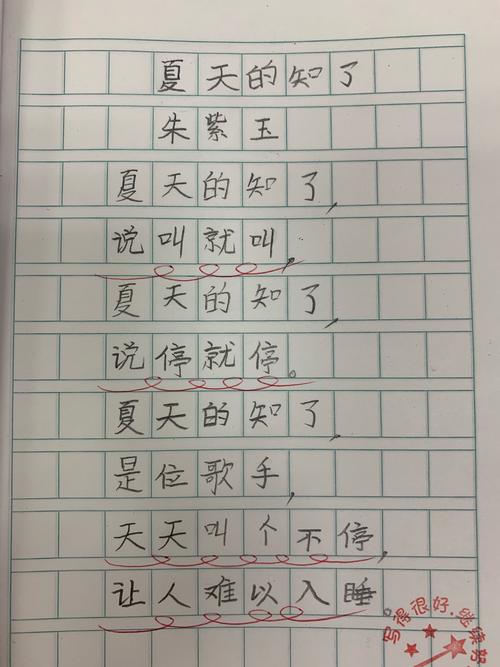 夏天的知了
朱紫玉
夏天的知了，
说叫就叫，
夏天的知了，
说停就停。
夏天的知了，
是位歌手，
天天叫个不停，
让人难以入睡。
写得很好，继续努